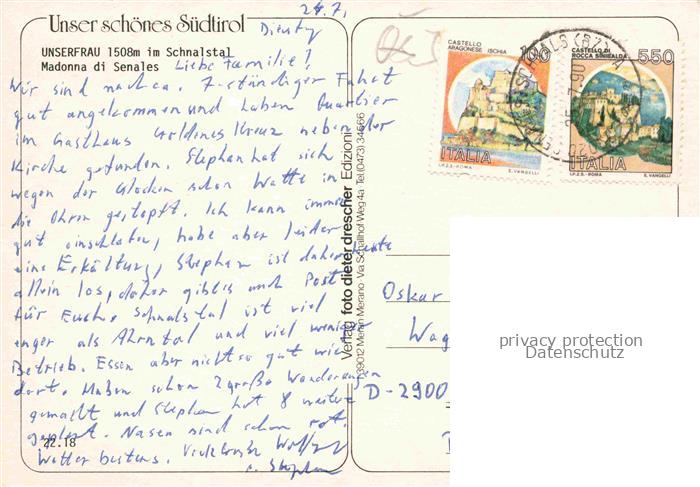 Unser schönes Südtirol
UNSERFRAU 1508m im Schnalstal
Madonna di Senales
24.7.
Dienstg
Liebe Familie!
Wir sind nach ca. 7-stündiger Fahrt
gut angekommen und haben Quartier
im Gasthaus Goldenes Kreuz neben der
Kirche gefunden. Stephan hat sich
wegen der Glocken schon Watte in
die Ohren gestopft. Ich kann immer
gut einschlafen, habe aber leider
eine Erkältung, Stephan ist daher heute
allein los, daher gibt es auch Post
für Euch. Schnalstal ist viel
enger als Ahrntal und viel weniger
Betrieb. Essen aber nicht so gut wie
dort. Haben schon 2 große Wanderungen
gemacht und Stephan hat 8 weitere
geplant. Nasen sind schon rot.
Wetter bestens. Viele Grüße
u. Stephan
22.18
Verlag foto dieter drescher Edizioni
39012 Meran Merano · Via Schaffhof Weg 4a Tel (0473) 34566
CASTELLO
ARAGONESE ISCHIA
ITALIA
I.P.Z.S. - ROMA E. VANGELLI
CASTELLO DI
ROCCA SINIBALDA
550
ITALIA
I.P.Z.S. - ROMA E. VANGELLI
Oskar
Wag
D-2900
privacy protection
Datenschutz